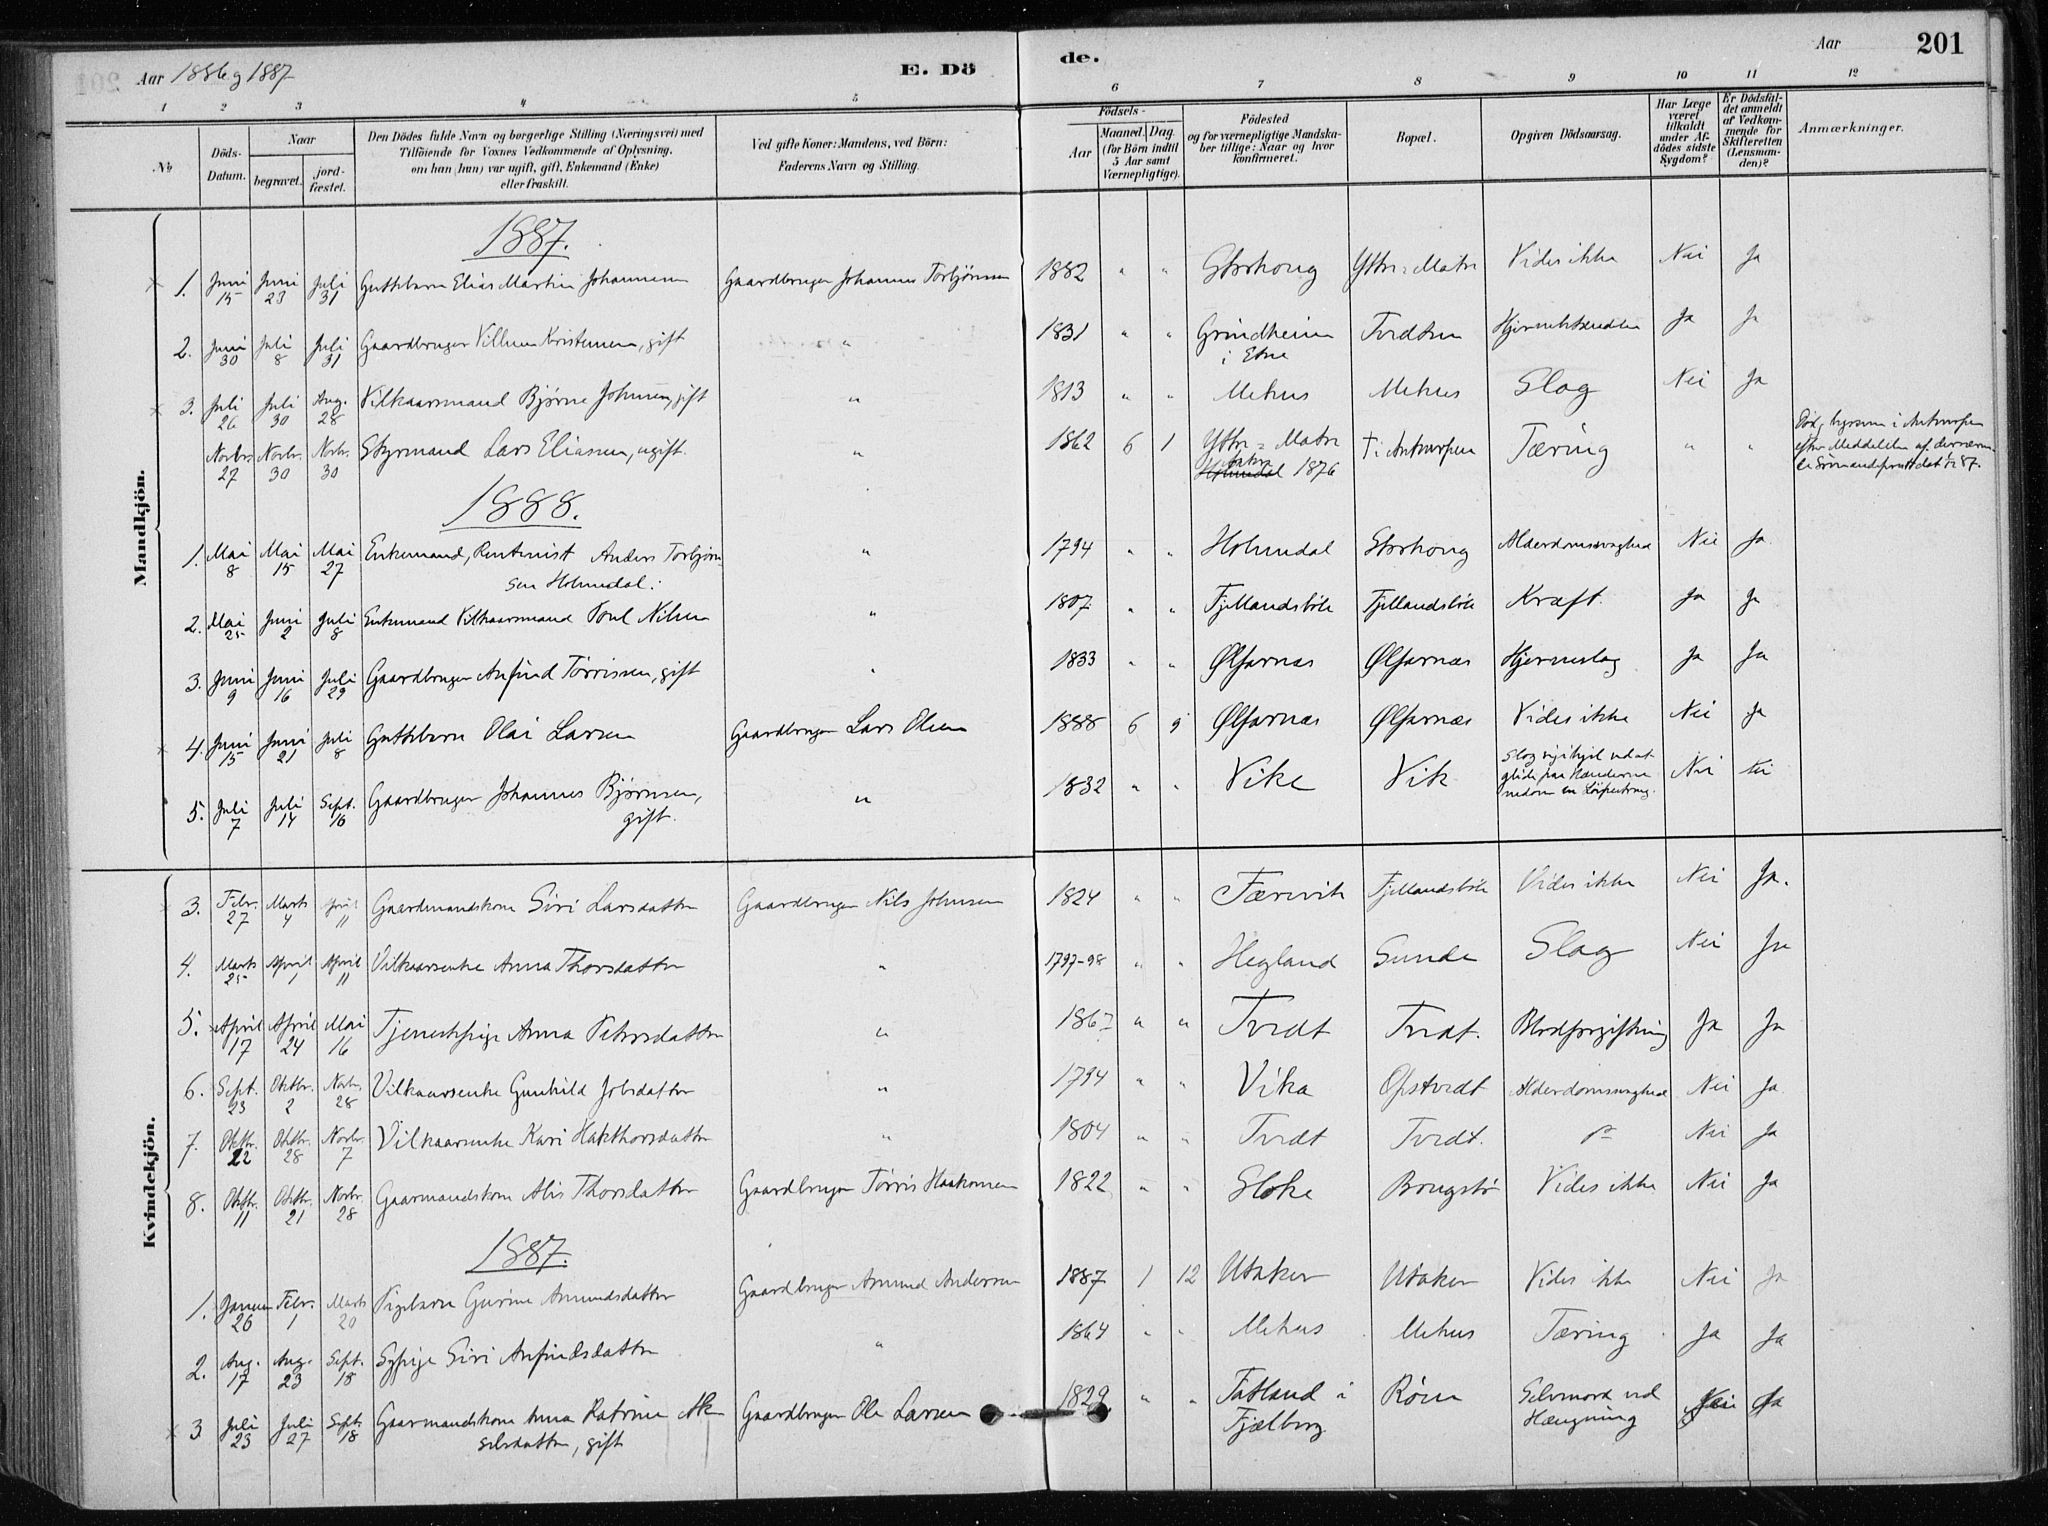 Aar 1886 og 1887
E. Dö de.
Aar 201
1 2 3 4 5 6 7 8 9 10 11 12
No
Döds-Datum.
Naar begravet. jordfæstet.
Den Dödes fulde Navn og borgerlige Stilling (Næringsvei) med Tilföiende for Voxnes Vedkommende af Oplysning, om han (hun) var ugift, gift, Enkemand (Enke) eller fraskilt.
Ved gifte Koner: Mandens, ved Börn: Faderens Navn og Stilling.
Födsels- Aar Maaned. Dag. (for Börn indtil 5 Aar samt Værnepligtige).
Födested og for værnepligtige Mandskaber tillige: Naar og hvor konfirmeret.
Bopæl.
Opgiven Dödsaarsag.
Har Læge været tilkaldt under Afdödes sidste Sygdom?
Er Dödsfaldet anmeldt af Vedkommende for Skifteretten (Lensmanden)?
Anmærkninger.
Mandkjön.
1887.
1. Juni 15 Juni 23 Juli 31 Guttebarn Elias Martin Johannesen Gaardbruger Johannes Torbjørnsen 1882 " " Storhoug Ytre-Matre Vides ikke Nei Ja
2. Juni 30 Juli 8 Juli 31 Gaardbruger Villum Kristensen, gift " 1831 " " Grindheim i Etne Tvedten Ja Ja
3. Juli 26 Juli 30 Aug. 28 Vilkaarsmand Bjørne Johnsen, gift " 1813 " " Mehus Mehus Slag Nei Ja
Novbr. 27 Novbr. 30 Novbr. 30 Styrmand Lars Eliasen, ugift. " 1862 6 1 Ytre-Matre Holmedal 1876 † i Antwerpen Tæring " " Död, begraven i Antwerpen efter Meddelelse af derværende Sömandsprest dat 1/12 87.
1888.
1. Mai 8 Mai 15 Mai 27 Enkemand, Rentenist Anders Torbjørnsen Holmedal. " 1794 " " Holmedal Storhoug Alderdomssvaghed Nei Ja
2. Mai 25 Juni 2 Juli 8 Enkemand Vilkaarsmand Poul Nilsen " 1807. " " Fjellandsböle Fjellandsböle Kræft. Ja Ja
3. Juni 9 Juni 16 Juli 29 Gaardbruger Anfind Tørrissen, gift " 1833 " " Ølfarnæs Ølfarnæs Hjerneslag Ja Ja
4. Juni 15 Juni 21 Juli 8 Guttebarn Olai Larsen Gaardbruger Lars Olsen 1888 6 9 Ølfarnæs Ølfarnæs Vides ikke Nei Ja
5. Juli 7 Juli 14 Sept. 16 Gaardbruger Johannes Bjørnsen, gift. " 1832 " " Vike Vik Slog sig ihjel ved at glide paa Hænderne nedom en Löipestreng. Nei
Kvindekjön.
3. Febr. 27 Marts 4 April 11 Gaardmandskone Siri Larsdatter Gaardbruger Nils Johnsen 1824 " " Færevik Fjellandsböle Vides ikke Nei Ja.
4. Marts 25 April 1 April 11 Vilkaarsenke Anna Thorsdatter " 1797-98 " " Hegland Sunde Slag Nei Ja
5. April 17 April 24 Mai 16 Tjenestpige Anna Petersdatter " 1867 " " Tvedt Tvedt. Blodforgiftning Ja Ja
6. Sept. 23 Oktbr. 2 Novbr. 28 Vilkaarsenke Gunhild Jobsdatter " 1794 " " Vika Opstvedt Alderdomssvaghed Nei Ja
7. Oktbr. 22 Oktbr. 28 Novbr. 7 Vilkaarsenke Kari Hakthorsdatter " 1804 " " Tvedt Tvedt. Nei Ja
8. Oktbr. 11 Oktbr. 21 Novbr. 28 Gaarmandskone Alis Thorsdatter Gaardbruger Tørris Haakonsen 1822 " " Sloke Brugstö Vides ikke Nei Ja
1887.
1. Januar 26 Febr. 1 Marts 20 Pigebarn Gurine Amundsdatter Gaardbruger Amund Andersen 1887 1 12 Utaker Utaker Vides ikke Nei Ja
2. Aug. 17 Aug. 23 Sept. 18 Sypige Siri Anfindsdatter " 1864 " " Mehus Mehus Tæring Ja Ja
3 Juli 23 Juli 27 Sept. 18 Gaarmandskone Anna Katrine Akselsdatter, gift Gaardbruger Ole Larsen 1829 " " Tatland i Fjælberg Röen Selvmord ved Hængning Nei Ja